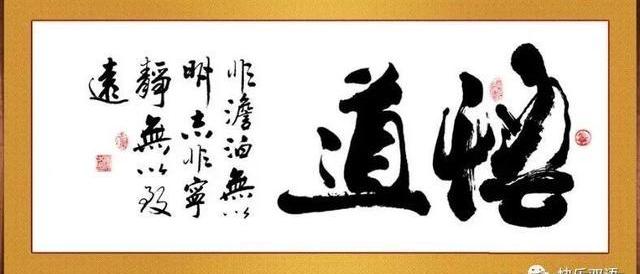 悟道
非澹泊無以
明志非寧
靜無以致
遠
快乐双语